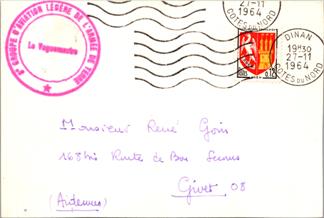 8e GROUPE D'AVIATION LÉGÈRE DE L'ARMÉE DE TERRE
Le Vaguemestre
27-11
1964
COTES DU NORD
DINAN
19H30
27-11
1964
COTES DU NORD
0,12
Monsieur René
168bis Route de Bon Secours
Givet 08
(Ardennes)